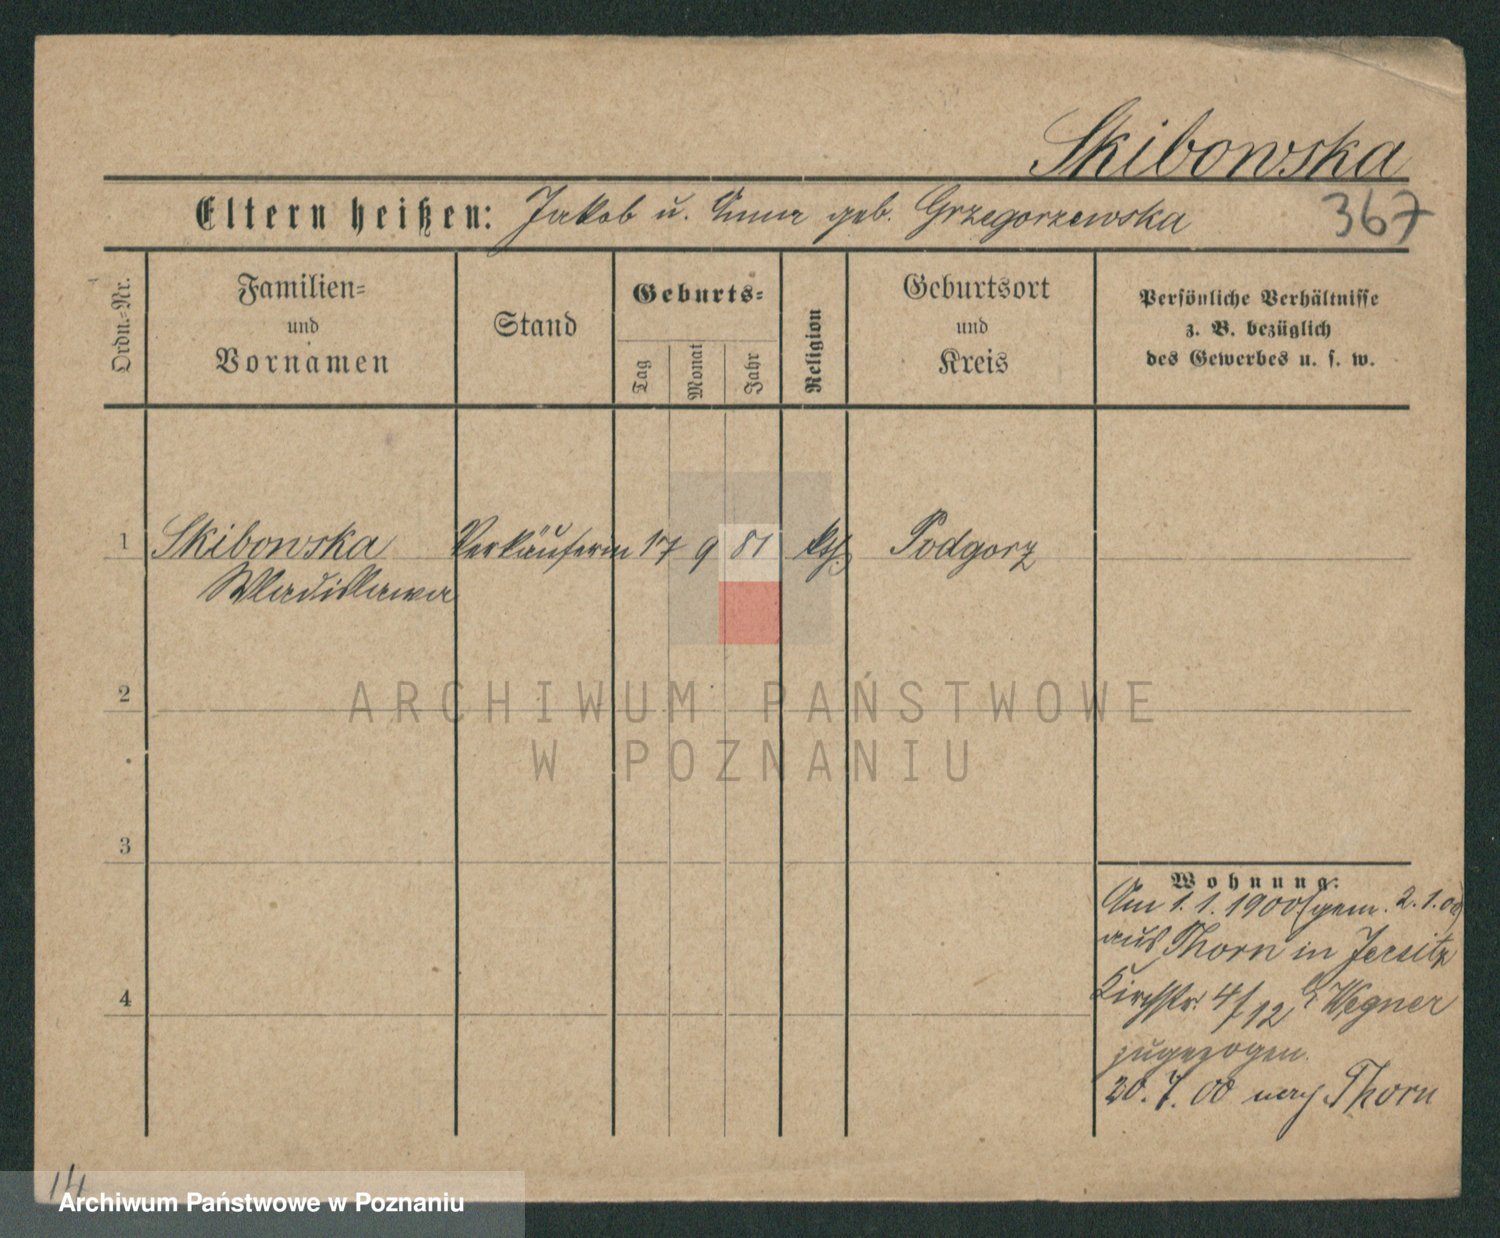 Skibowska
Eltern heißen: Jakob u. Anna geb. Grzegorzewska
367
Ordn.-Nr.
Familien-
und
Vornamen
Stand
Geburts-
Tag
Monat
Jahr
Religion
Geburtsort
und
Kreis
Persönliche Verhältnisse
z. B. bezüglich
des Gewerbes u. s. w.
1 Skibowska Verkäuferin 17 9 81 kth. Podgorz
Wladislawa
2
ARCHIWUM PAŃSTWOWE
W POZNANIU
3
4
Wohnung:
Am 1.1.1900 (gem. 2.1.00)
aus Thorn in Jersitz
Kirchstr. 4/12 b/ Wegner
zugezogen.
20.7.00 nach Thorn
14
Archiwum Państwowe w Poznaniu